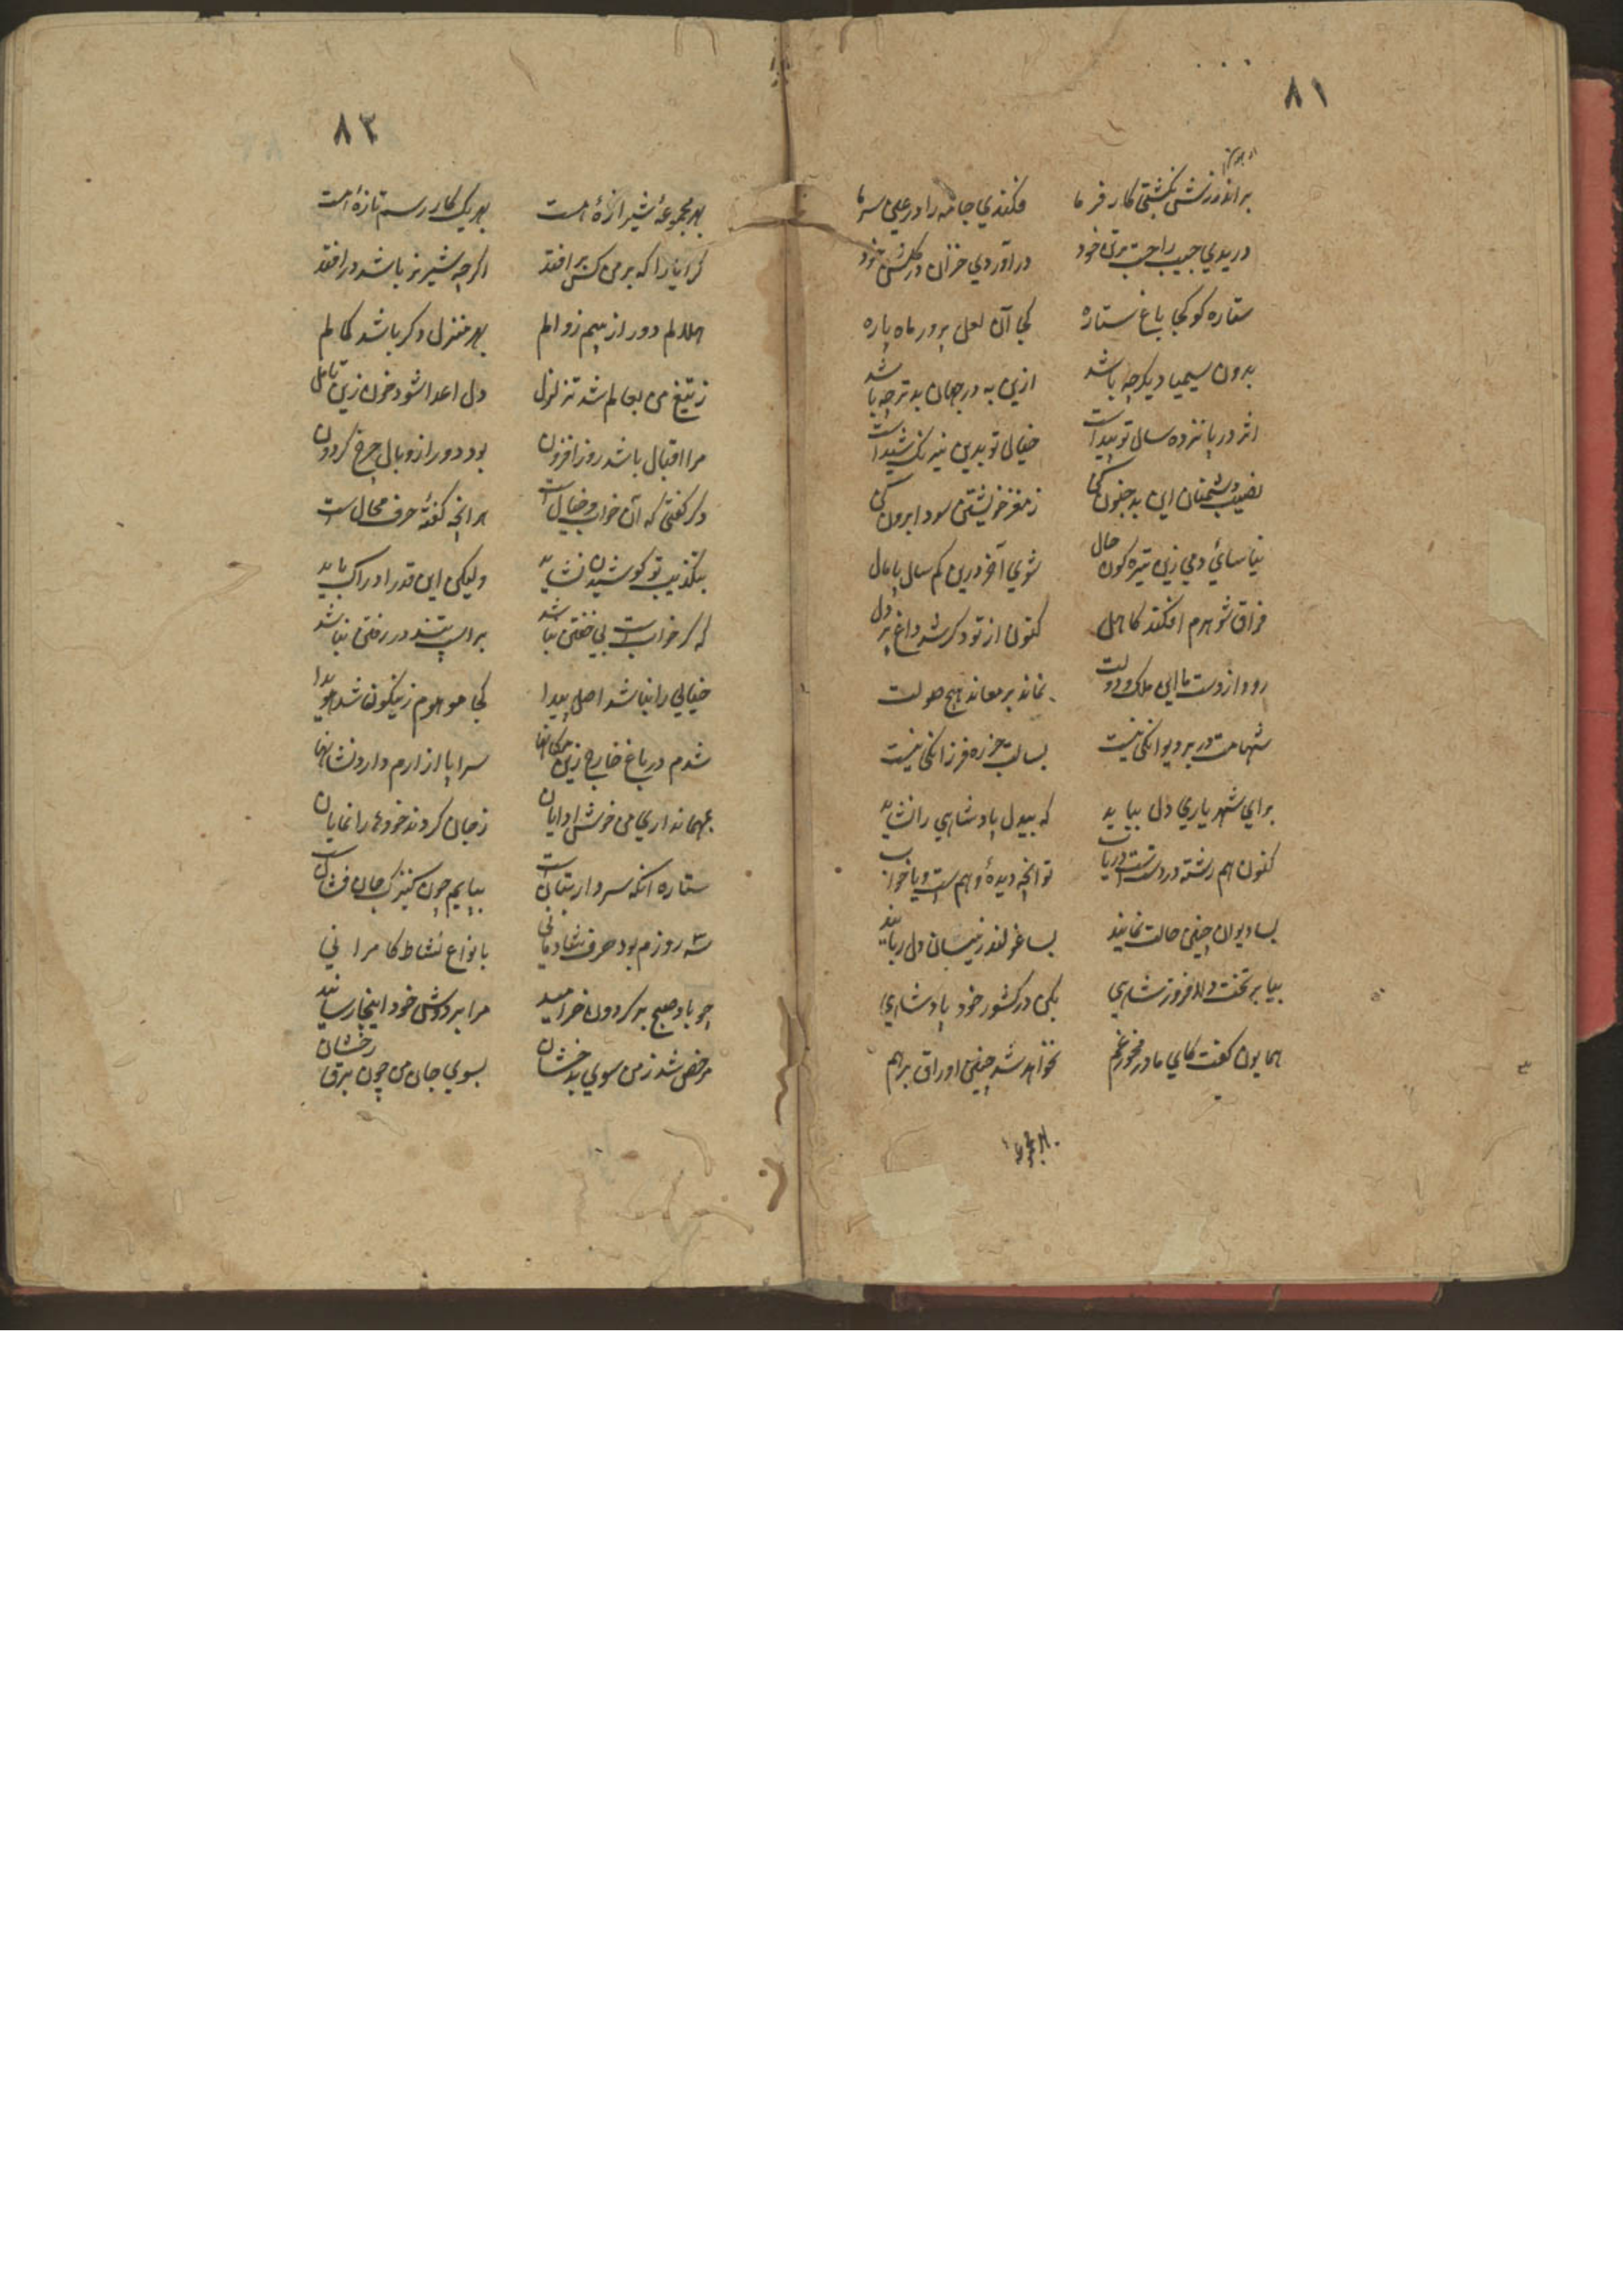 ۸۱
بر اندرزش نکشتی کار فرما فکندی جامه را در عین سرما
دریدی جیب راحت برتن خود در آوردی خزان در گلشن خود
ستاره کو کجا باغ ستاره کجا آن لعل پرور ماه پاره
بدون سیمیا دیگر چه باشد ازین به در جهان بدتر چه باشد
اثر در پانزده سال تو پیداست خیالی تو بدین نیرنگ شیداست
نصیب دشمنان این بد جنون کی ز مغز خویشتن سودا برون کی
نیاسائی دمی زین تیره کون حال شوی آخر درین کم سال پامال
فراق شوهرم افکند کاهل کنون از تو دگر شد داغ بر دل
رود از دست ما این ملک و دولت نماند بر معاند هیچ صولت
شهامت در بر دیوانگی نیست بسالت جزره فرزانگی نیست
برای شهریاری دل بباید که بیدل پادشاهی را نشاید
کنون هم رشته در دست است دریاب تو انچه دیدهٔ وهم ست و یا خواب
بسا دیوان چنین حالت نمایند بسا غولند زینسان دل ربایند
بیا بر تخت والا فروز شاهی بکن در کشور خود پادشاهی
همایون گفت کای مادر مخور غم نخواهد شد چنین اوراق برهم
۸۳
بهر مجموعهٔ شیرازهٔ هست بهر یک کار رسم تازهٔ هست
کرا یارا که بر من کس برافتد اگر چه شیر نر باشد در افتد
هلالم دور از بیم زوالم بهر منزل دگر باشد کمالم
ز تیغ من بعالم شد تزلزل دل اعدا شود خون زین تامل
مرا اقبال باشد روز افزون بود دور از وبال چرخ گردون
دگر گفتی که آن خواب و خیال است هر انچه گفتهٔ حرف محال ست
بتکذیب تو کوشیدن نشاید ولیکن این قدر ادراک باید
که گر خواب ست بی خفتن نباشد براسپ تند در رفتن نباشد
خیالی را نباشد اصل پیدا کجا موهوم زینگون شد هویدا
شدم در باغ خارج زین مکانها سراپا از ارم دارد نشانها
بمهمانداری من خوش ادایان ز جان کردند خود را نمایان
ستاره انکه سردار بتان است بپایم چون کنیزک جان فشان است
سه روزم بود صرف شادمانی بانواع نشاط کامرانی
چو باد صبح بر گردون خرامید مرا بر دوش خود اینجا رسانید
مرخص شد ز من سوی بدخشان بسوی جان من چون برق رخشان